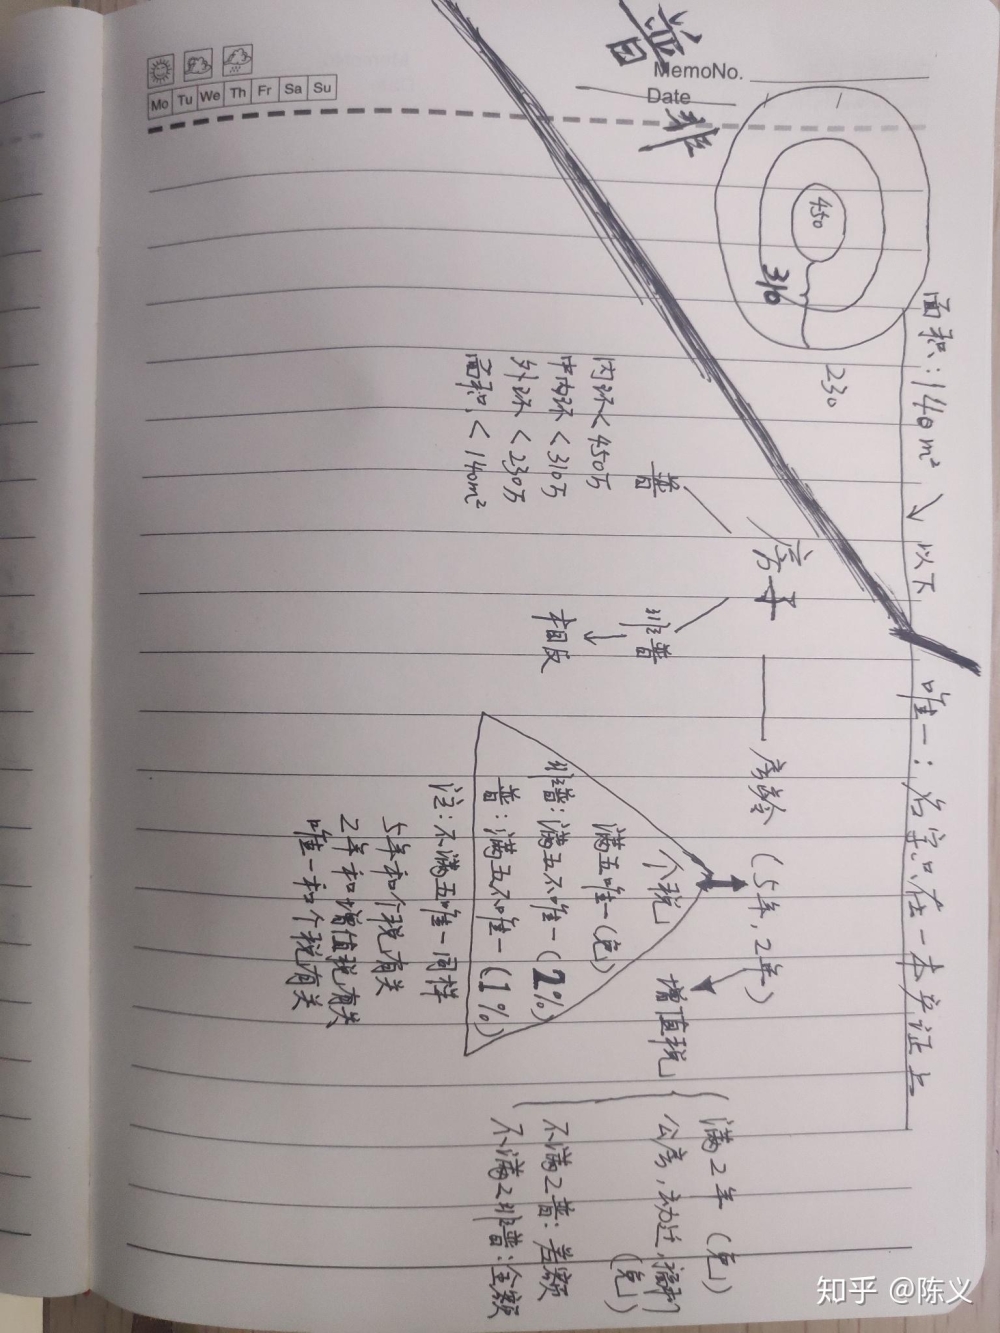 普
非
MemoNo.
Date
Mo Tu We Th Fr Sa Su
450
310
230
面积:140m² ↘ 以下
唯一:名字只在一本产证上
房子
普
内环<450万
中内环<310万
外环<230万
面积:<140m²
非普
↓
相反
房龄(5年,2年)
个税
满五唯一(免)
非普:满五不唯一(2%)
普:满五不唯一(1%)
注:不满五唯一同样
5年和个税有关
2年和增值税有关
唯一和个税有关
增值税
满2年(免)
公房,动迁,
(免)
不满2普:差额
不满2非普:全额
知乎 @陈义